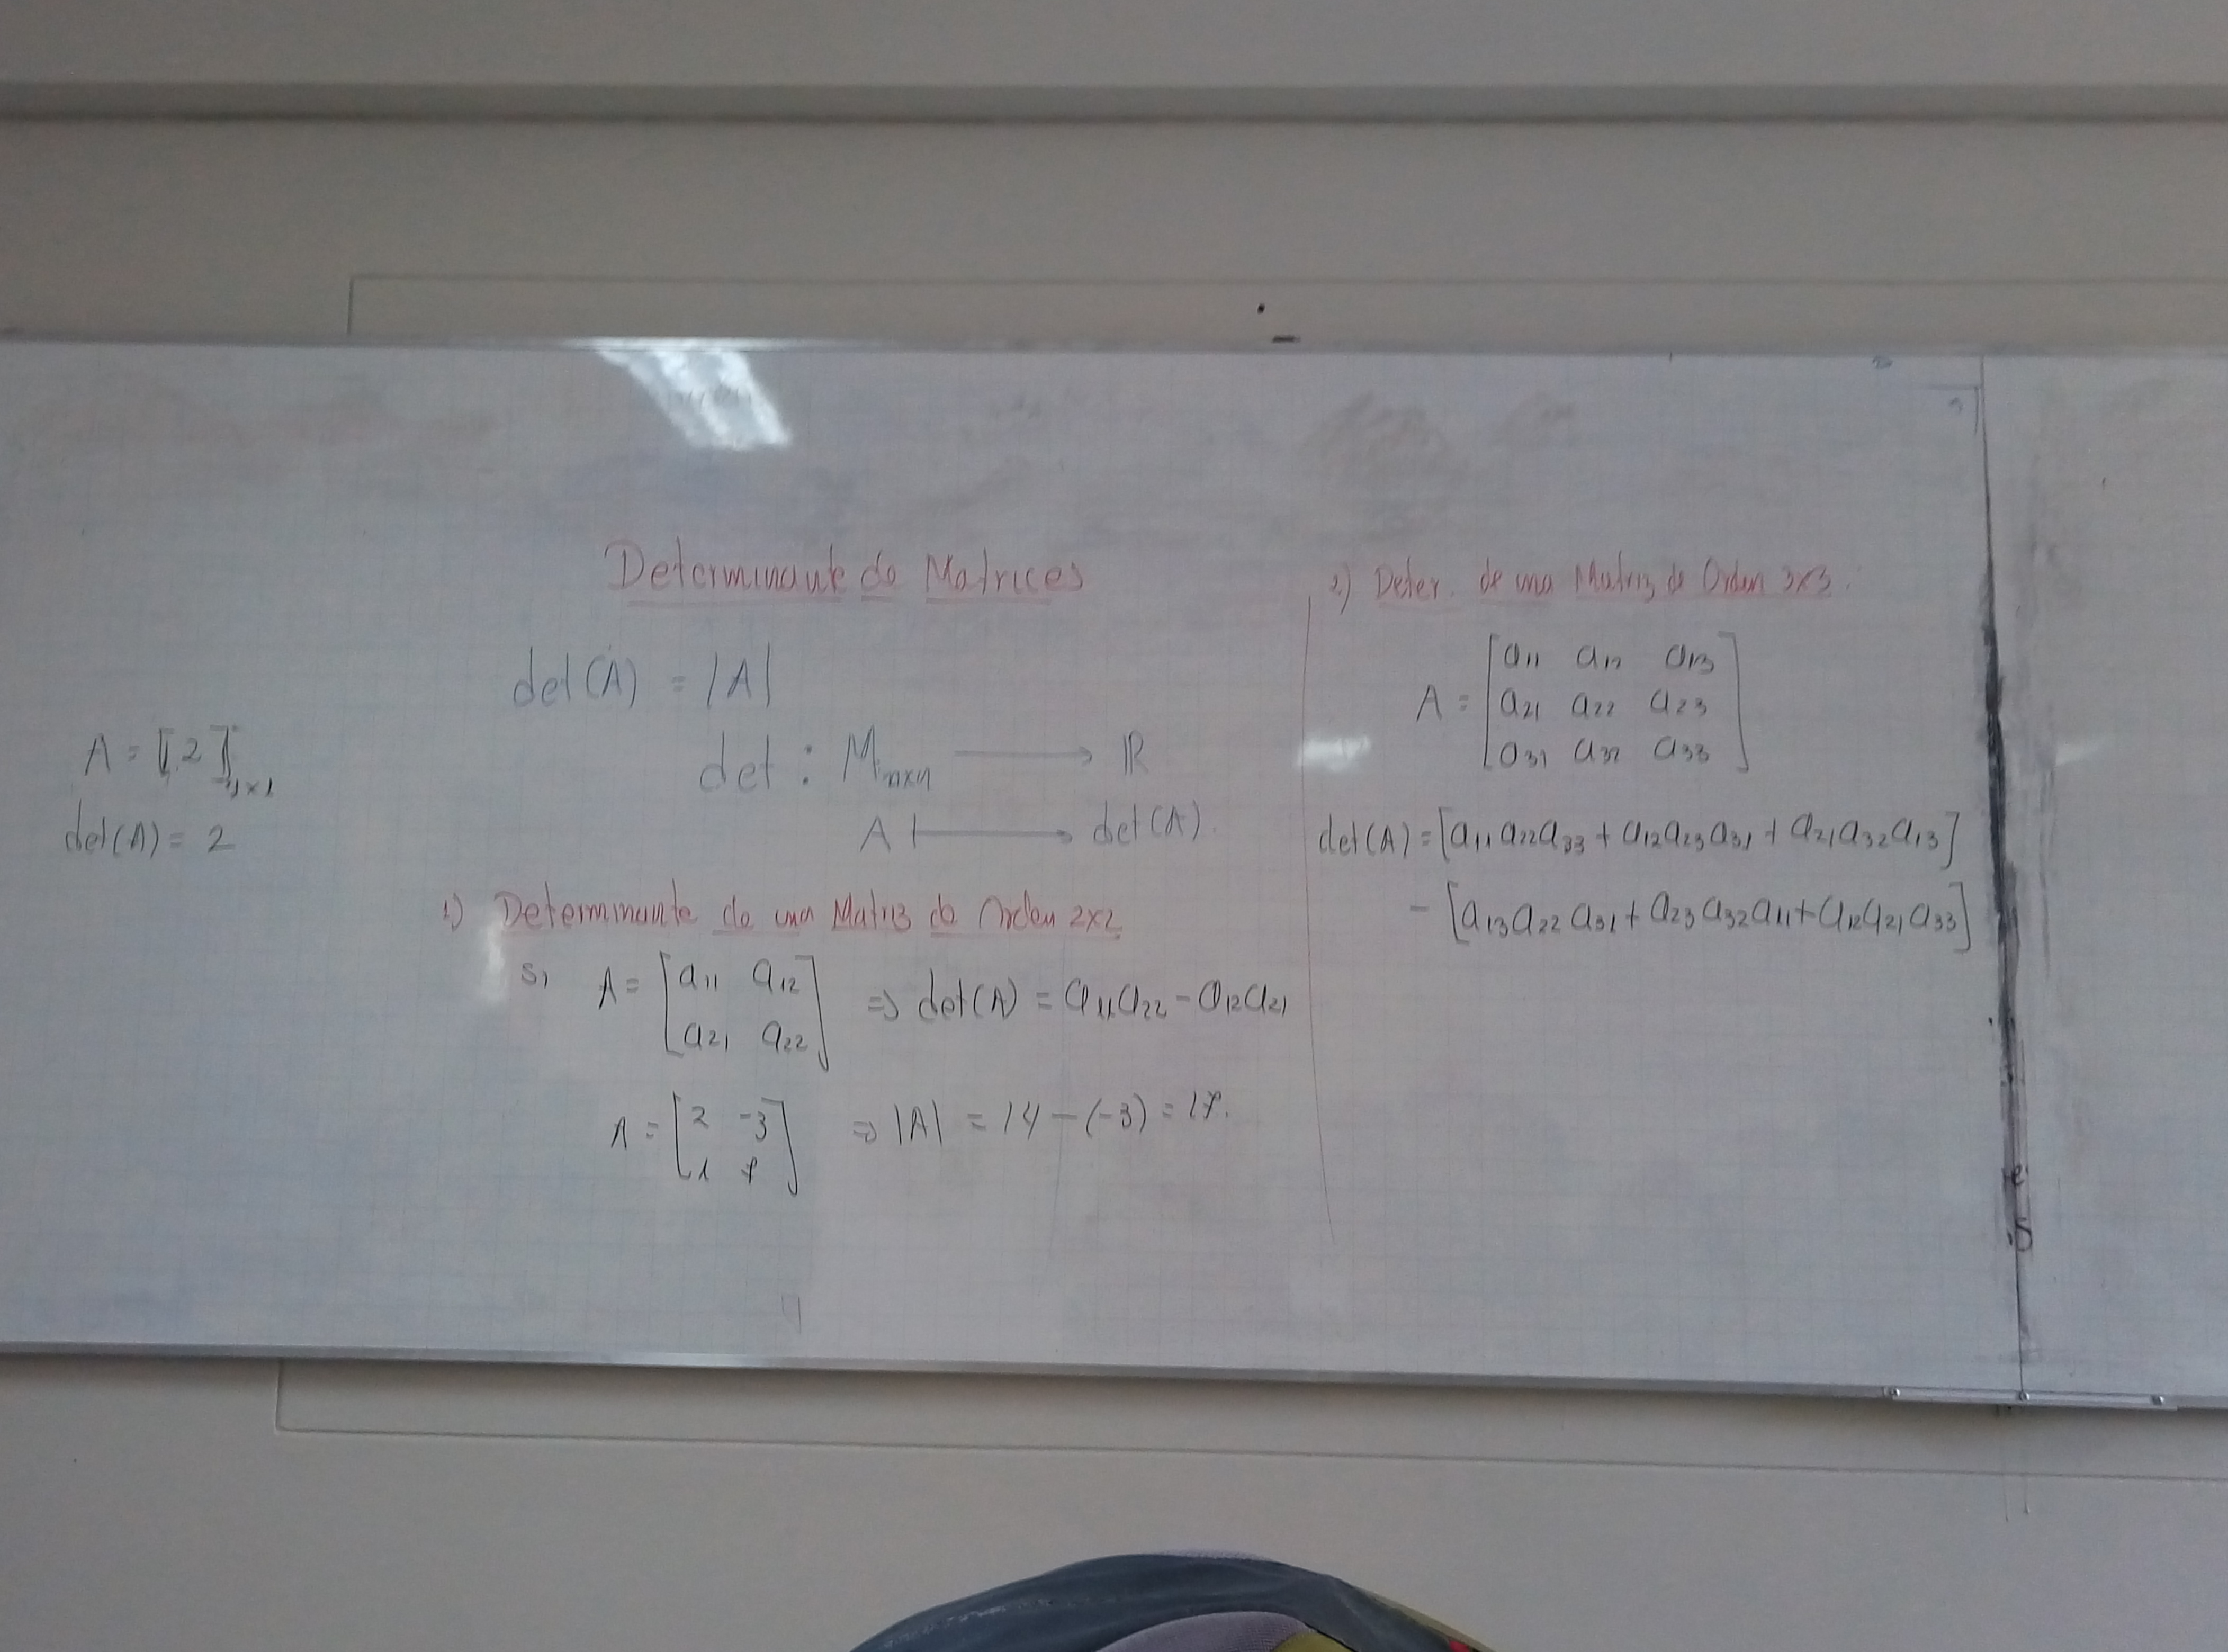 Determinante de Matrices
det(A) = |A|
det : Mnxn ⟶ R
A ⟼ det(A).
A = [2]1x1
det(A) = 2
1) Determinante de una Matriz de Orden 2x2
Si A = [a11 a12
a21 a22] ⇒ det(A) = a11a22 - a12a21
A = [2 -3
1 7] ⇒ |A| = 14 - (-3) = 17.
2) Deter. de una Matriz de Orden 3x3.
A = [a11 a12 a13
a21 a22 a23
a31 a32 a33]
det(A) = [a11a22a33 + a12a23a31 + a21a32a13]
- [a13a22a31 + a23a32a11 + a12a21a33]